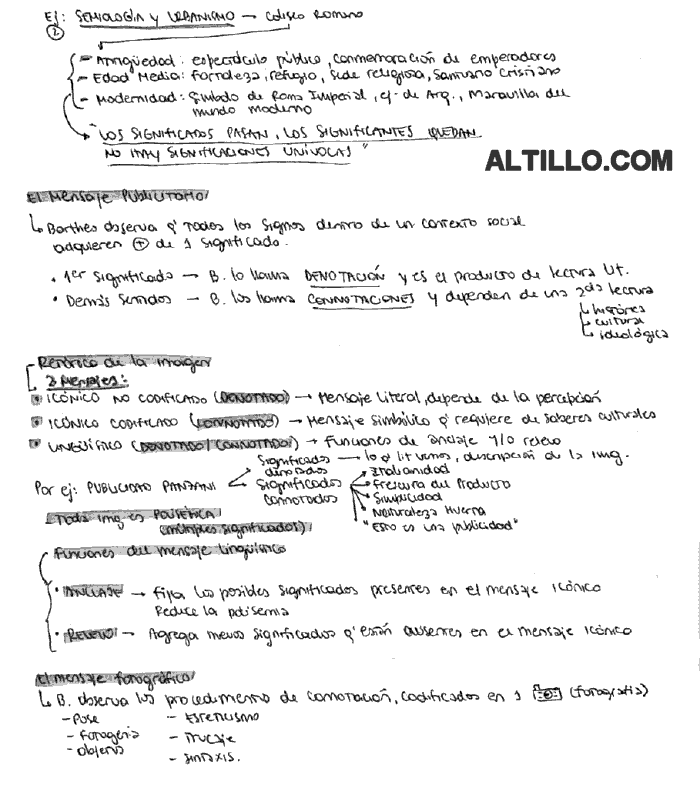 Ej: SEMIOLOGÍA y URBANISMO → Coliseo Romano
②
- Antigüedad: espectáculo público, conmemoración de emperadores
- Edad Media: Fortaleza, refugio, sede religiosa, Santuario Cristiano
- Modernidad: Símbolo de Roma Imperial, ej. de Arq., Maravilla del
mundo moderno
"LOS SIGNIFICADOS PASAN, LOS SIGNIFICANTES QUEDAN.
NO HAY SIGNIFICACIONES UNÍVOCAS"
ALTILLO.COM
El Mensaje Publicitario
Barthes observa q' todos los signos dentro de un contexto social
adquieren ⊕ de 1 significado.
• 1er Significado → B. lo llama DENOTACIÓN y es el producto de lectura lit.
• Demás sentidos → B. los llama CONNOTACIONES y dependen de una 2da lectura
histórica
cultural
ideológica
Retórica de la imagen
3 Mensajes:
ICÓNICO NO CODIFICADO (DENOTADO) → Mensaje Literal, depende de la percepción
ICÓNICO CODIFICADO (CONNOTADO) → Mensaje simbólico q' requiere de saberes culturales
LINGÜÍSTICO (DENOTADO/CONNOTADO) → Funciones de anclaje y/o relevo
Significados denotados → lo q' lit vemos, descripción de la img.
Por ej: PUBLICIDAD PANZANI
Significados connotados
Italianidad
Frescura del Producto
Simplicidad
Naturaleza Muerta
"Esto es una publicidad"
Toda img es POLISÉMICA
(múltiples significados)
Funciones del mensaje lingüístico
• ANCLAJE → Fija los posibles significados presentes en el mensaje icónico
Reduce la polisemia
• RELEVO → Agrega nuevos significados q' están ausentes en el mensaje icónico
El mensaje fotográfico
B. observa los procedimiento de connotación, codificados en 1 (fotografía)
- Pose
- Fotogenia
- Objetos
- Esteticismo
- Trucaje
- Sintaxis.